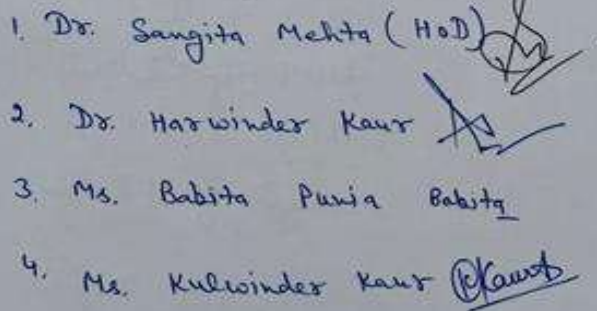 1. Dr. Sangita Mehta (HoD)
2. Dr. Harwinder Kaur
3. Ms. Babita Punia Babita
4. Ms. Kulwinder Kaur KKaur